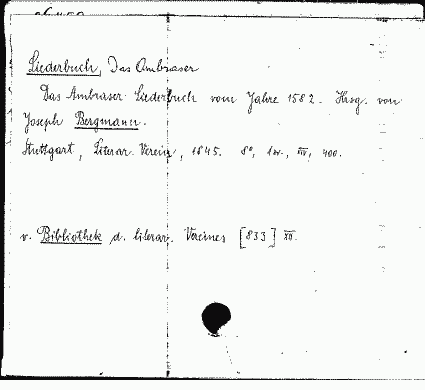 Liederbuch, Das Ambraser
Das Ambraser Liederbuch vom Jahre 1582. Hrsg. von
Joseph Bergmann.
Stuttgart, Literar. Verein, 1845. 8°, 400.
v. Bibliothek d. literar. Vereines [833] XII.